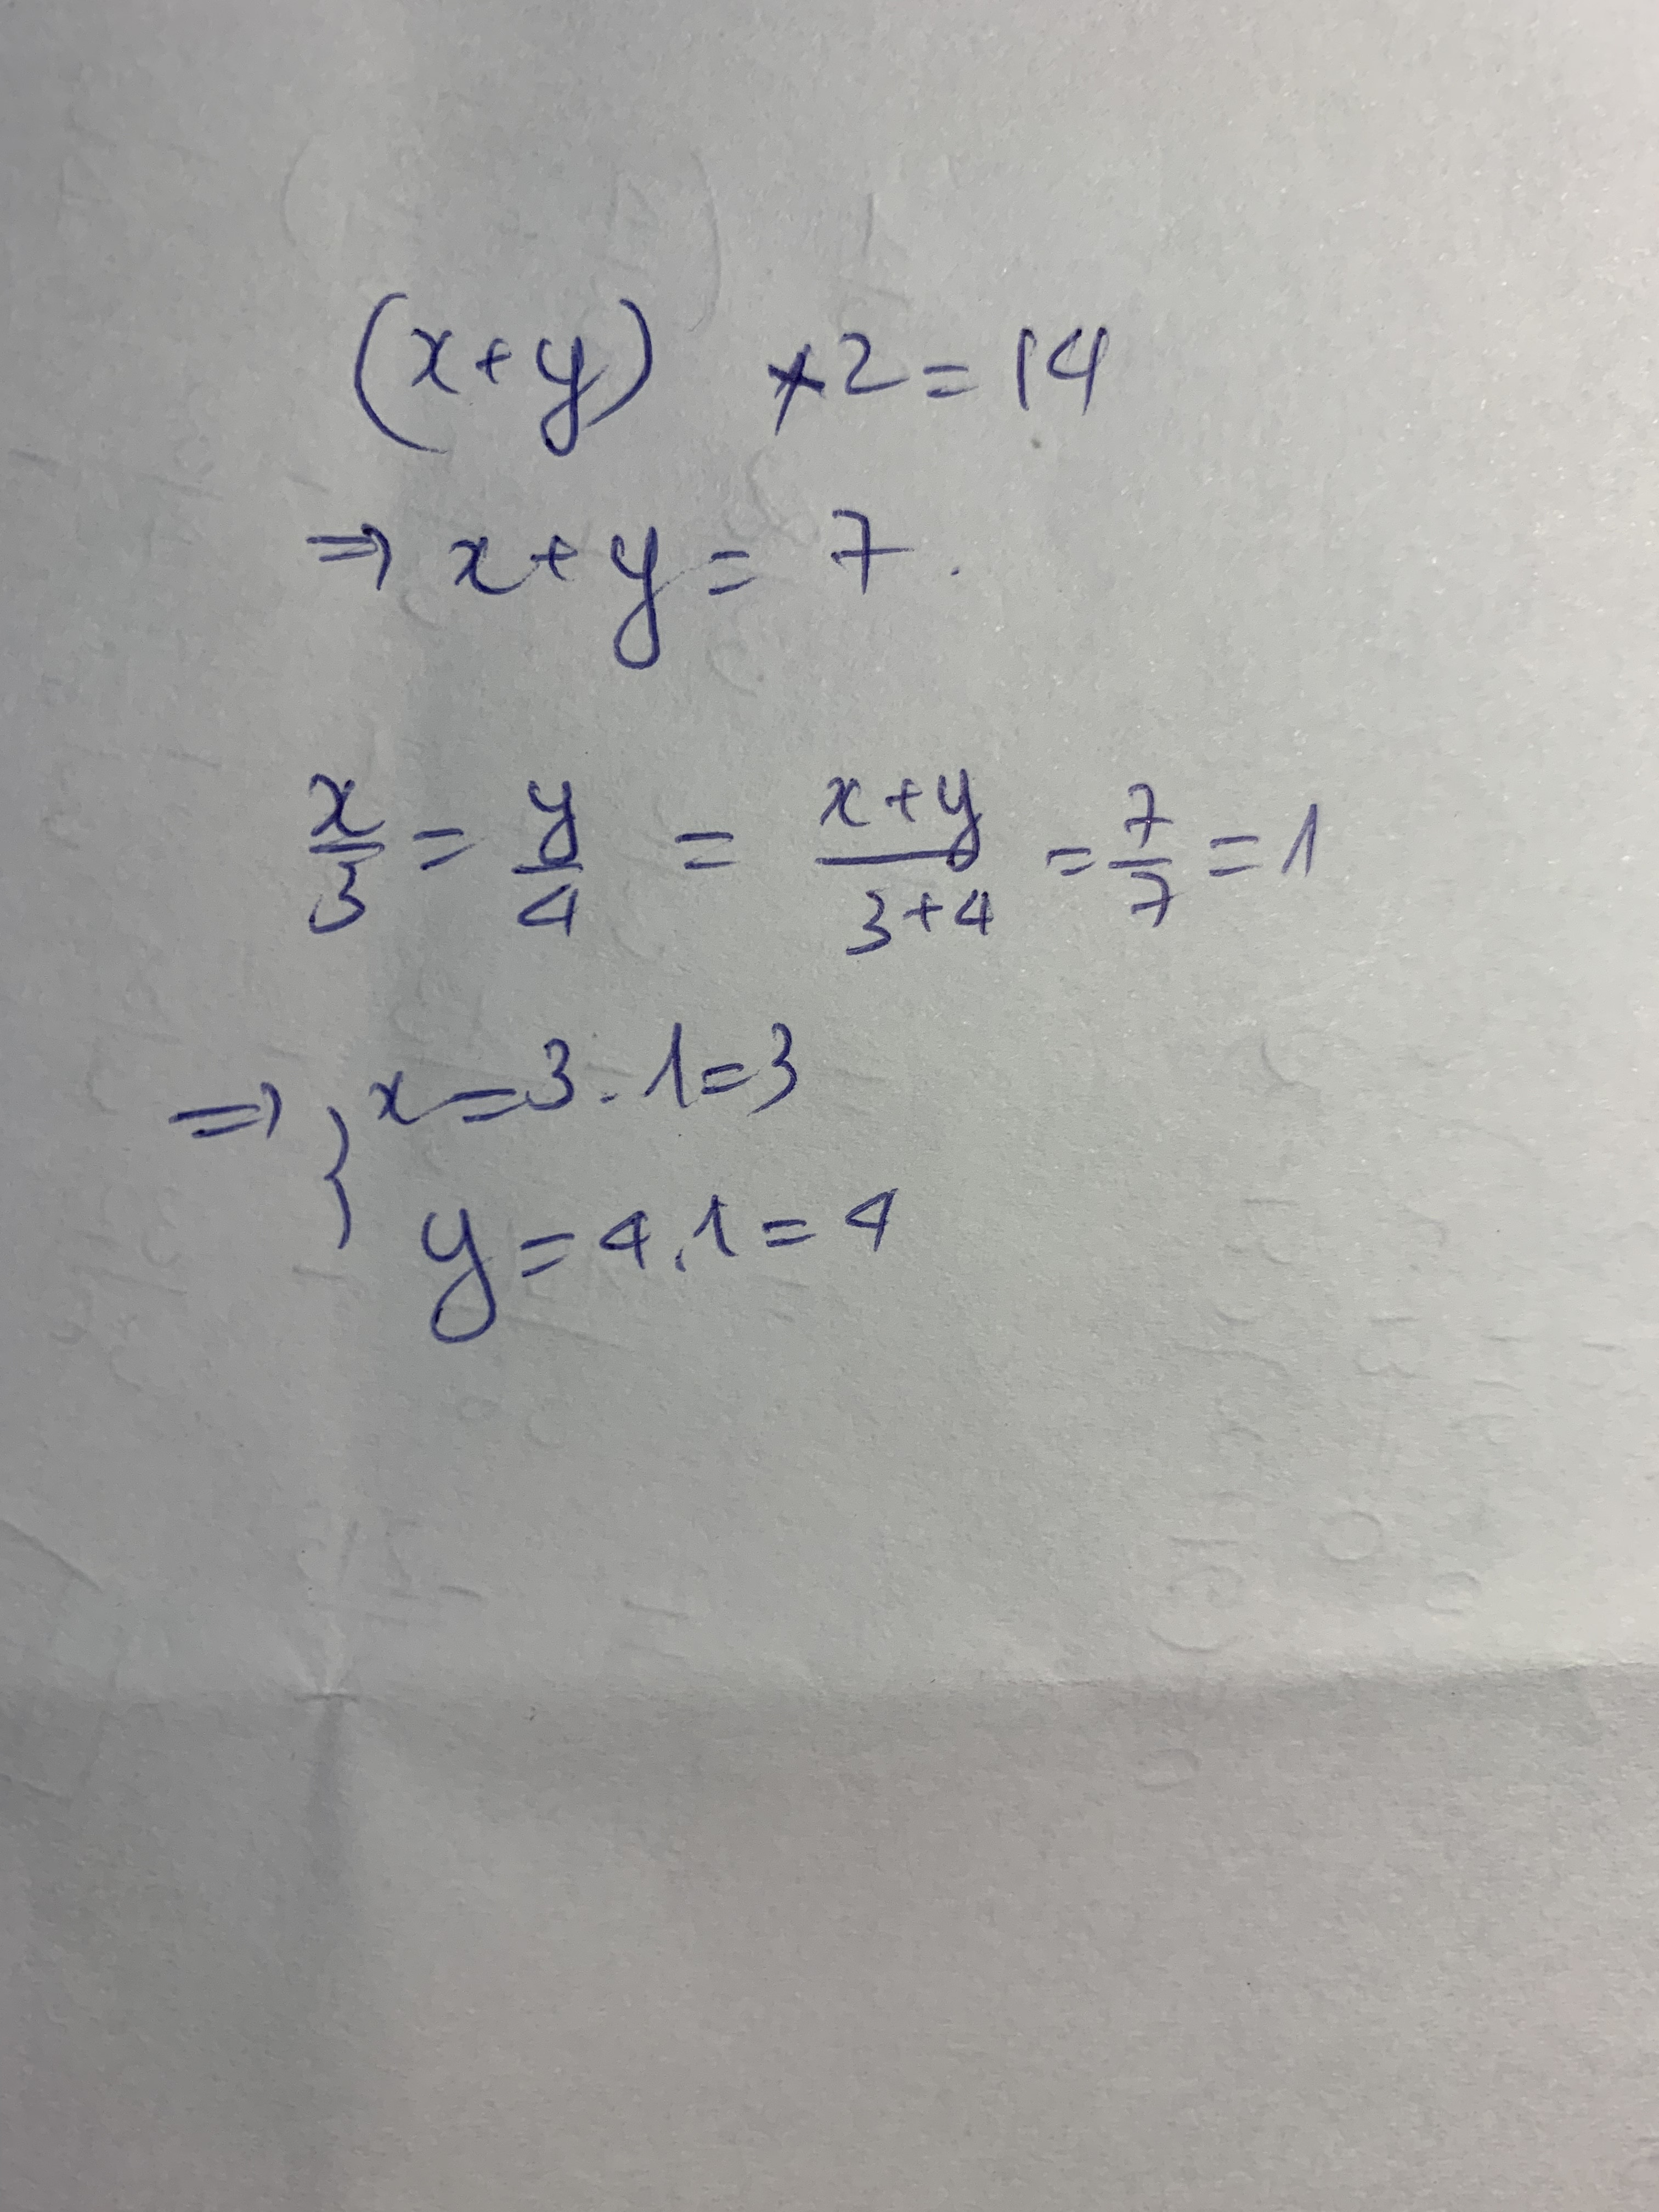 (x+y) ×2=14
⇒ x+y= 7.
x/3 = y/4 = x+y/3+4 = 7/7 = 1
⇒ } x=3.1=3
y=4.1=4